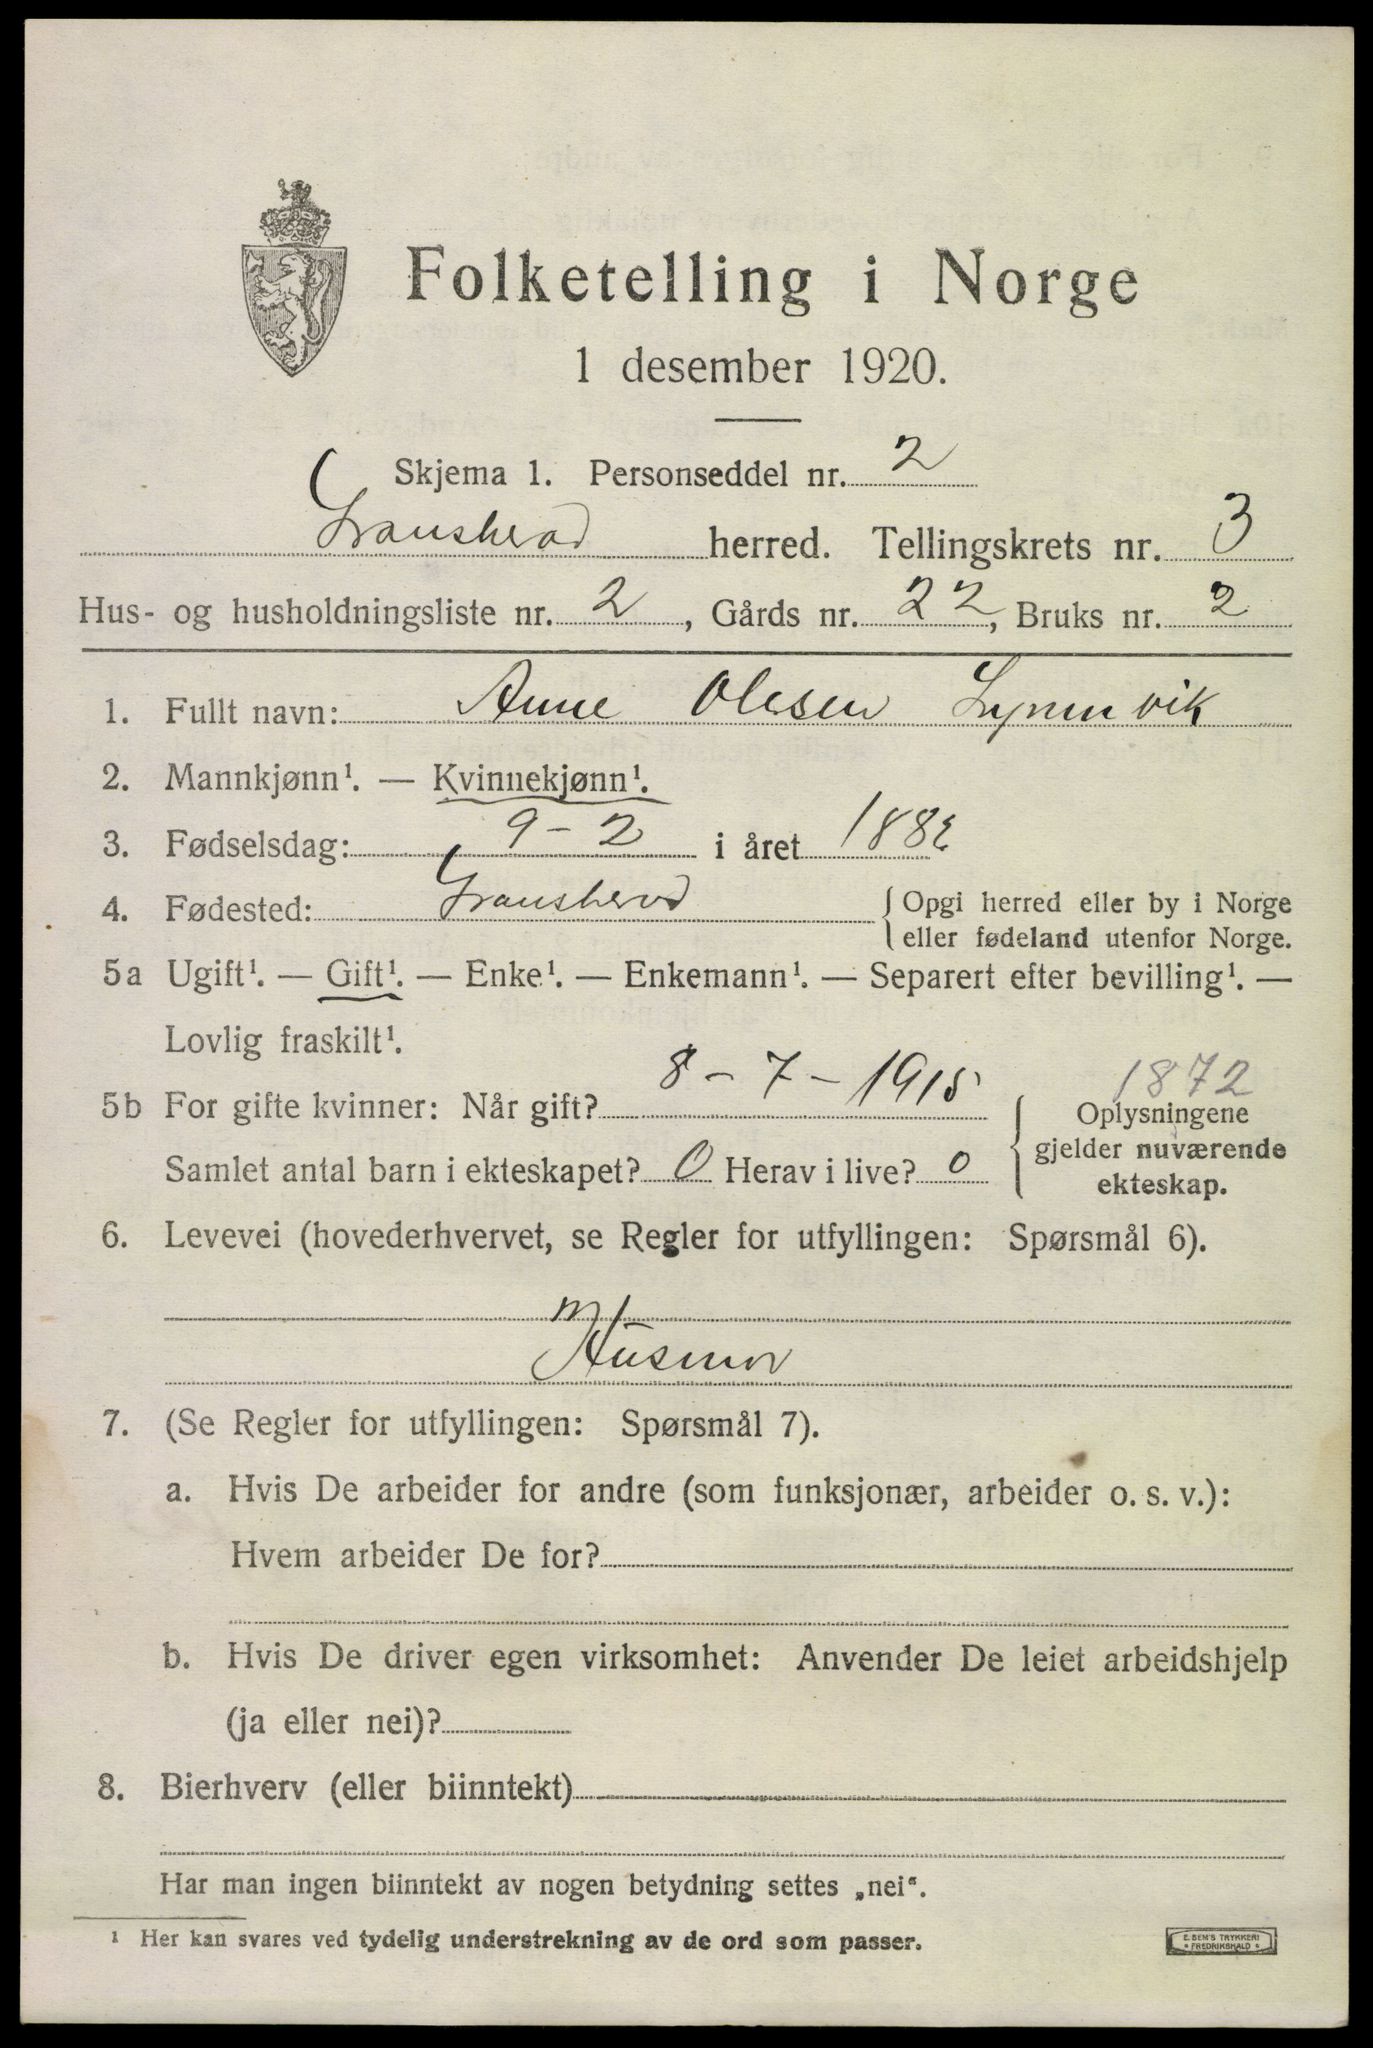 Folketelling i Norge
1 desember 1920.
Skjema 1. Personseddel nr. 2
Gransherad herred. Tellingskrets nr. 3
Hus- og husholdningsliste nr. 2, Gårds nr. 22, Bruks nr. 2
1. Fullt navn: Anne Olesen
2. Mannkjønn¹. — Kvinnekjønn¹.
3. Fødselsdag: 9-2 i året
4. Fødested: Gransherad {Opgi herred eller by i Norge
eller fødeland utenfor Norge.
5a Ugift¹. — Gift¹. — Enke¹. — Enkemann¹. — Separert efter bevilling¹. —
Lovlig fraskilt¹.
1872
5b For gifte kvinner: Når gift? 8-7-1915
Samlet antal barn i ekteskapet? 0 Herav i live? 0
{Oplysningene
gjelder nuværende
ekteskap.
6. Levevei (hovederhvervet, se Regler for utfyllingen: Spørsmål 6).
m
Husmor
7. (Se Regler for utfyllingen: Spørsmål 7).
a. Hvis De arbeider for andre (som funksjonær, arbeider o. s. v.):
Hvem arbeider De for?
b. Hvis De driver egen virksomhet: Anvender De leiet arbeidshjelp
(ja eller nei)?
8. Bierhverv (eller biinntekt)
Har man ingen biinntekt av nogen betydning settes „nei“.
¹ Her kan svares ved tydelig understrekning av de ord som passer.
E. SEM'S TRYKKERI
* FREDRIKSHALD *